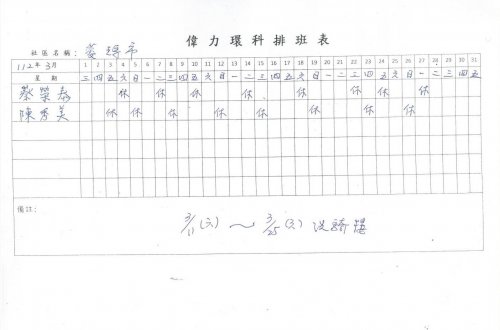 偉力環科排班表
社區名稱：
112年 3月 1 2 3 4 5 6 7 8 9 10 11 12 13 14 15 16 17 18 19 20 21 22 23 24 25 26 27 28 29 30 31
星期 三 四 五 六 日 一 二 三 四 五 六 日 一 二 三 四 五 六 日 一 二 三 四 五 六 日 一 二 三 四 五
蔡榮泰 休 休 休 休 休 休 休 休
陳秀美 休 休 休 休 休 休 休 休
備註：
3/11(六)～3/25(六)